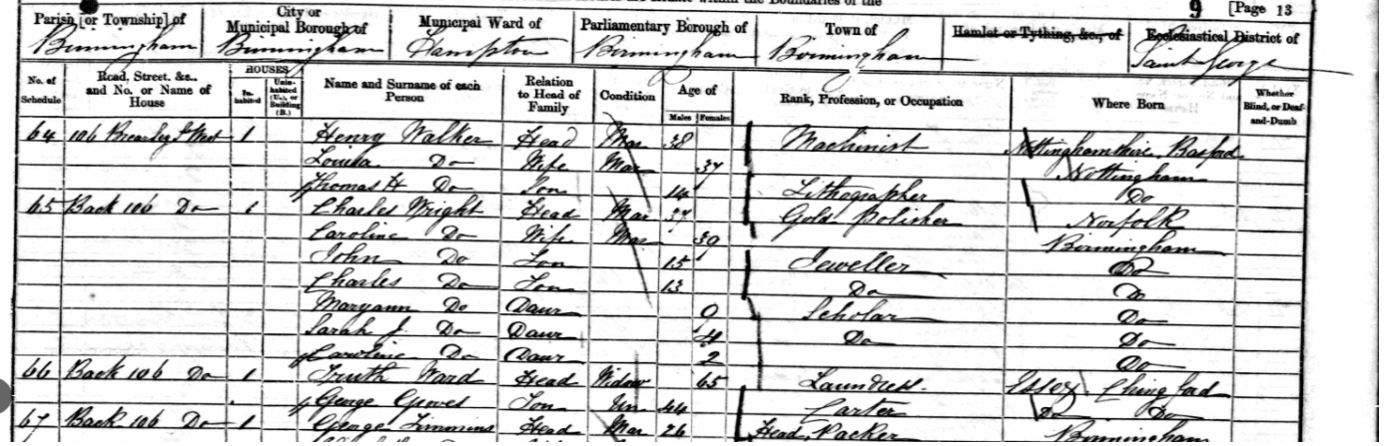 9 [Page 13
Parish [or Township] of City or Municipal Borough of Municipal Ward of Parliamentary Borough of Town of Hamlet or Tything, &c., of Ecclesiastical District of
Birmingham Birmingham Hampton Birmingham Birmingham Saint George
No. of Schedule Road, Street, &c., and No. or Name of House HOUSES Inhabited Uninhabited (U.), or Building (B.) Name and Surname of each Person Relation to Head of Family Condition Age of Males Females Rank, Profession, or Occupation Where Born Whether Blind, or Deaf-and-Dumb
64 106 Brearley St West 1 Henry Walker Head Mar 38 Machinist Nottinghamshire Basford
Louisa Do Wife Mar 37 Nottingham
Thomas H Do Son 14 Lithographer Do
65 Back 106 Do 1 Charles Wright Head Mar 37 Gold Polisher Norfolk
Caroline Do Wife Mar 39 Birmingham
John Do Son 15 Jeweller Do
Charles Do Son 13 Do Do
Maryann Do Daur 9 Scholar Do
Sarah J Do Daur 4 Do Do
Caroline Do Daur 2 Do
66 Back 106 Do 1 Ward Head Widow 65 Laundress Essex Chingford
George Groves Son Un 44 Carter Do Do
67 Back 106 Do 1 George Timmins Head Mar 26 Packer Birmingham